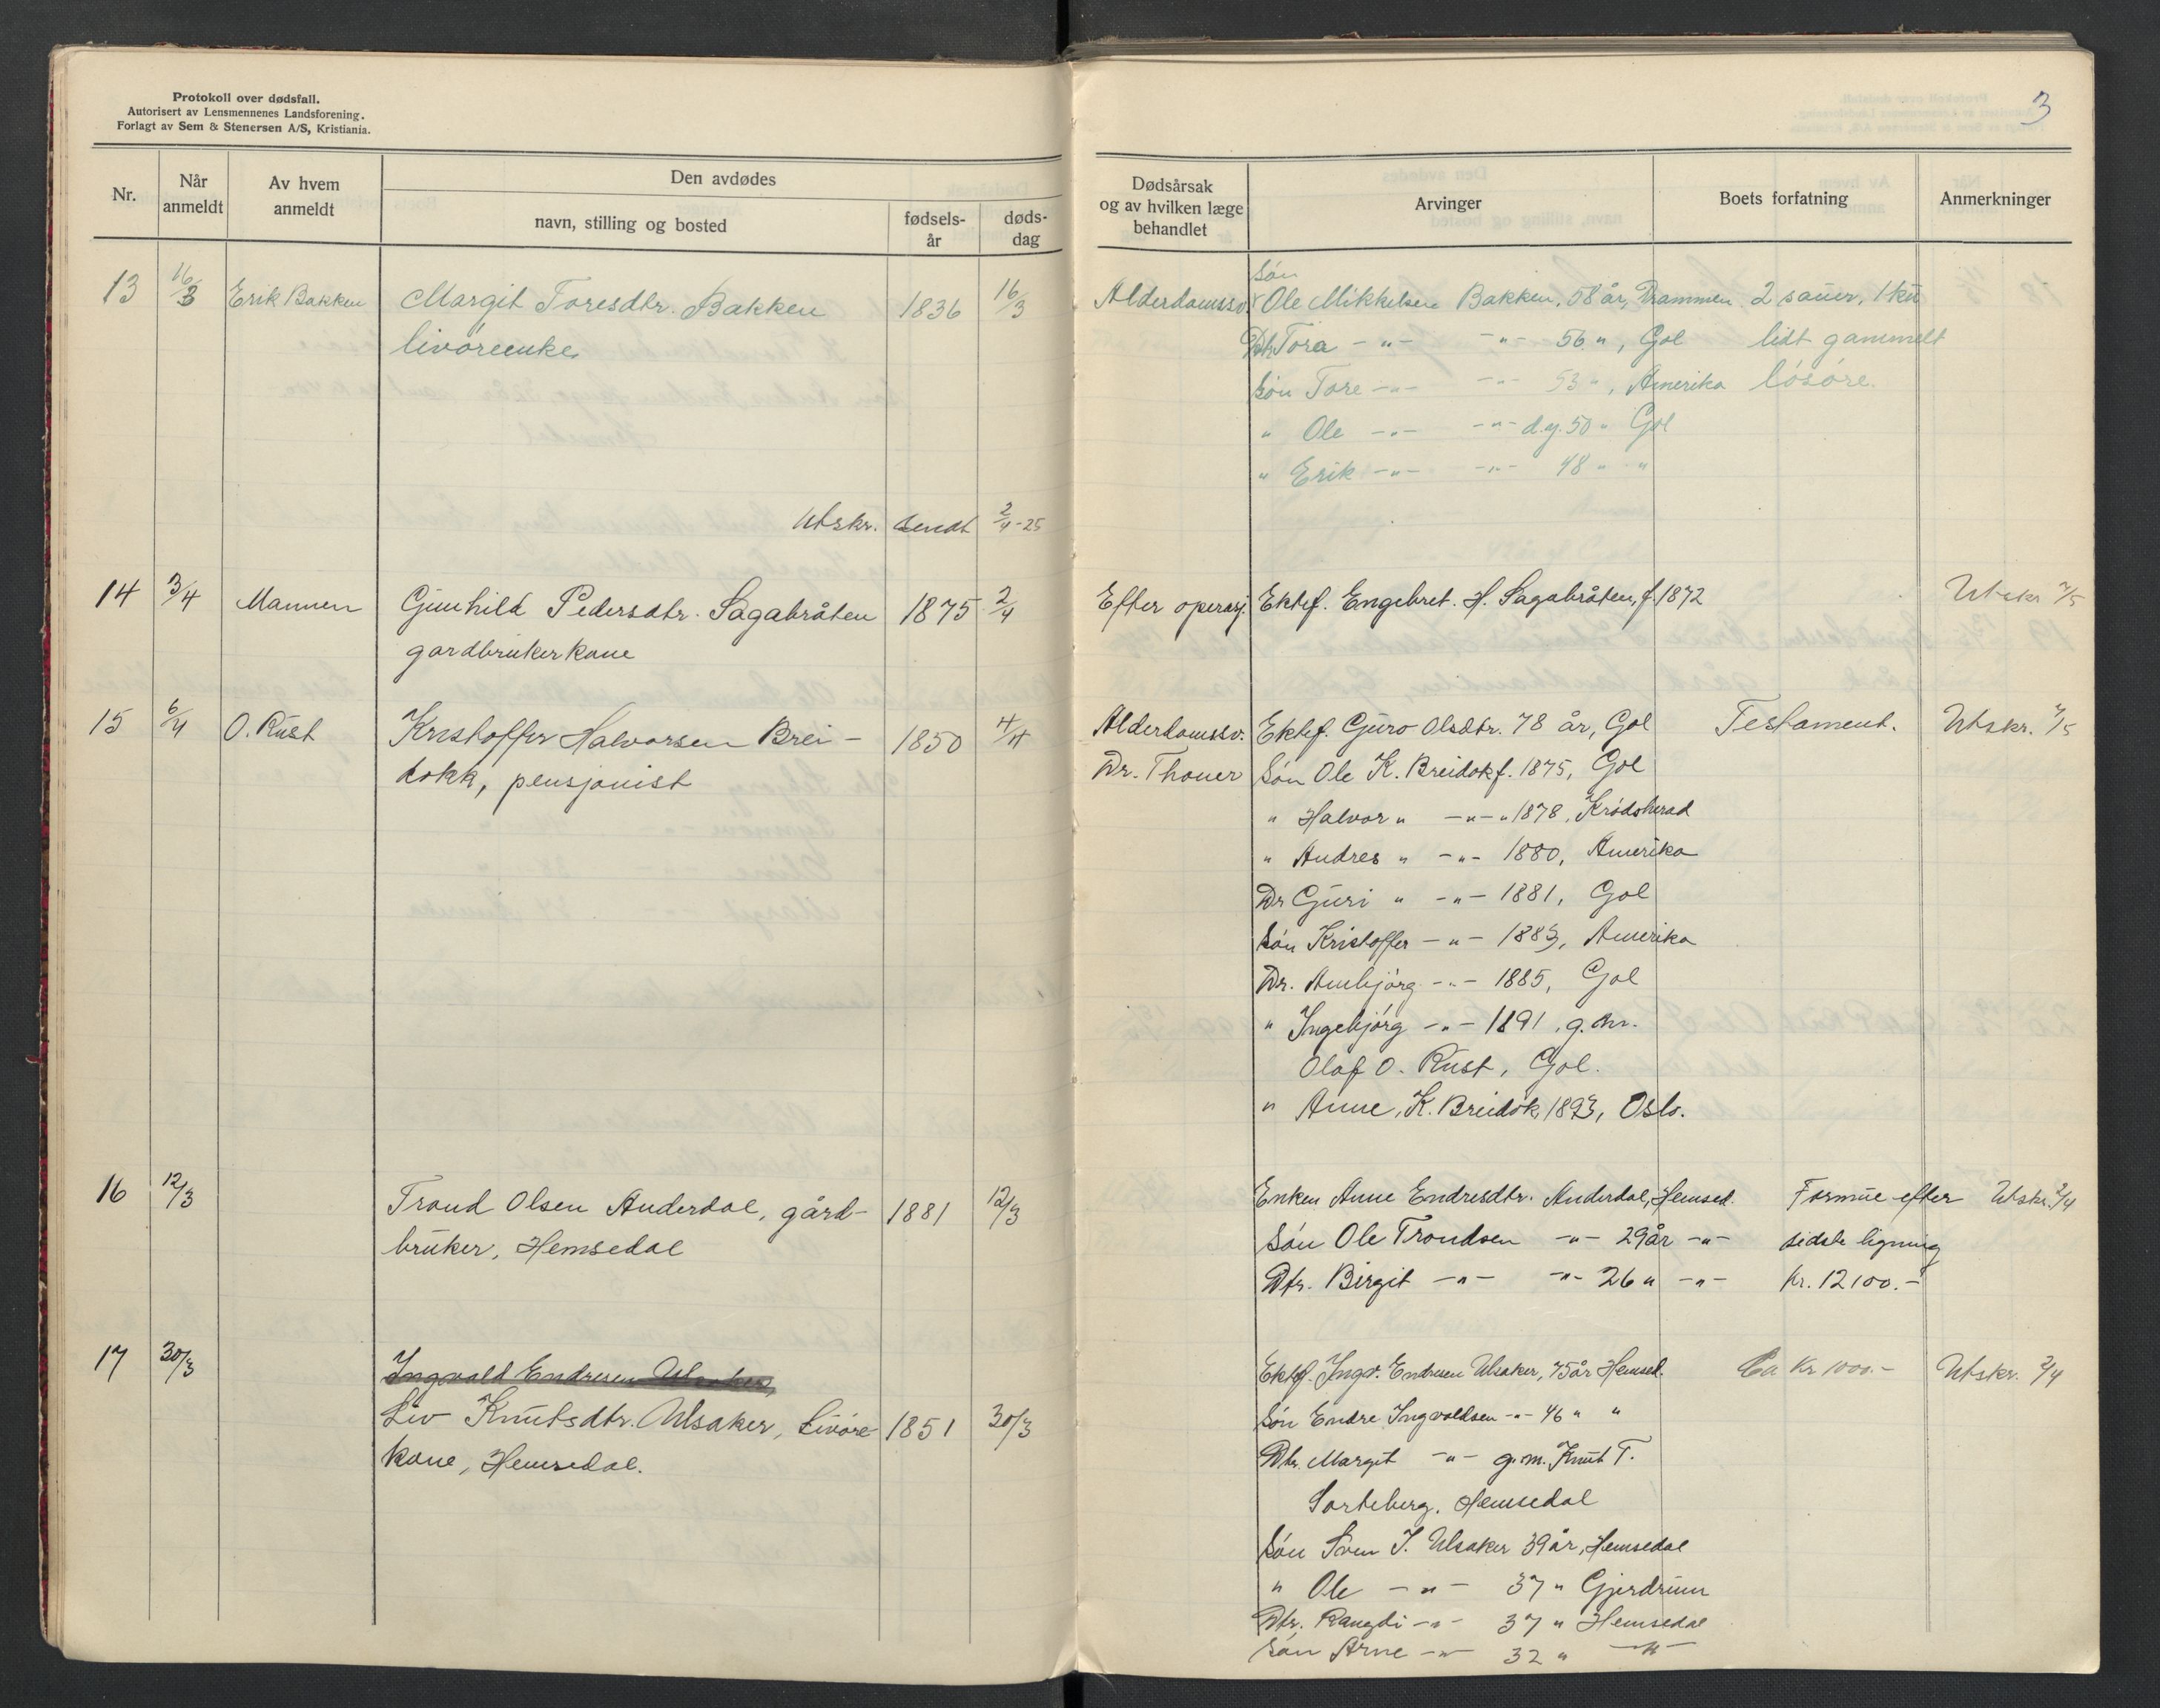 Protokoll over dødsfall.
Autorisert av Lensmennenes Landsforening.
Forlagt av Sem & Stenersen A/S, Kristiania.
Nr.
Når anmeldt
Av hvem anmeldt
Den avdødes
navn, stilling og bosted
fødsels-år
døds-dag
13 16/3 Erik Bakken Margit Toresdtr. Bakken 1836 16/3
livøreenke
Utskr. sendt 2/4-25
14 3/4 Mannen Gunhild Pedersdtr. Sagabråten 1875 2/4
gardbrukerkone
15 6/4 O. Rust Kristoffer Halvorsen Brei- 1850 4/4
dokk, pensjonist
16 12/3 Trond Olsen Anderdal, gård- 1881 12/3
bruker, Hemsedal
17 30/3 Ingvald Endresen Ulsaker,
Liv Knutsdtr. Ulsaker, Livøre- 1851 30/3
kone, Hemsedal.
3
Dødsårsak
og av hvilken læge
behandlet
Arvinger
Boets forfatning
Anmerkninger
Søn
Alderdomssv. Ole Mikkelsen Bakken, 58 år, Drammen 2 sauer, 1 ku
Dtr Tora -"- -"- 56 ", Gol lidt gammelt
Søn Tore -"- -"- 53 ", Amerika løsøre.
" Ole -"- -"- d.y. 50 " Gol
" Erik -"- -"- 48 " "
Efter operasj. Ektef. Engebret. H. Sagabråten, f. 1872 Utskr 2/5
Alderdomssv. Ektef. Guro Olsdtr. 78 år, Gol Testament. Utskr. 2/5
Dr. Thoner Søn Ole K. Breidok f. 1875, Gol
" Halvor " -"- " 1878, Krødsherad
" Andres " -"- 1880, Amerika
Dr Guri " -"- 1881, Gol
Søn Kristoffer -"- 1883, Amerika
Dr. Anbjørg -"- 1885, Gol
" Ingebjørg -"- 1891, g.m.
Olaf O. Rust, Gol.
" Anne, K. Breidok, 1893, Oslo.
Enken Anne Endresdtr. Anderdal, Hemsed. Formue efter Utskr. 2/4
Søn Ole Trondsen -"- 29 år -"- sidste ligning
Dtr. Birgit -"- -"- 26 " -"- kr. 12100.-
Ektef. Ingv. Endresen Ulsaker, 75 år Hemsed. Ca Kr 1000.- Utskr. 2/4
Søn Endre Ingvaldsen -"- 46 " "
Dtr. Margit -"- g.m. Knut T.
Sorteberg. Hemsedal
Søn Sven I. Ulsaker 39 år, Hemsedal
" Ole -"- 37 " Gjerdrum
Dtr. Rangdi -"- 37 " Hemsedal
Søn Arne -"- 32 " -"-